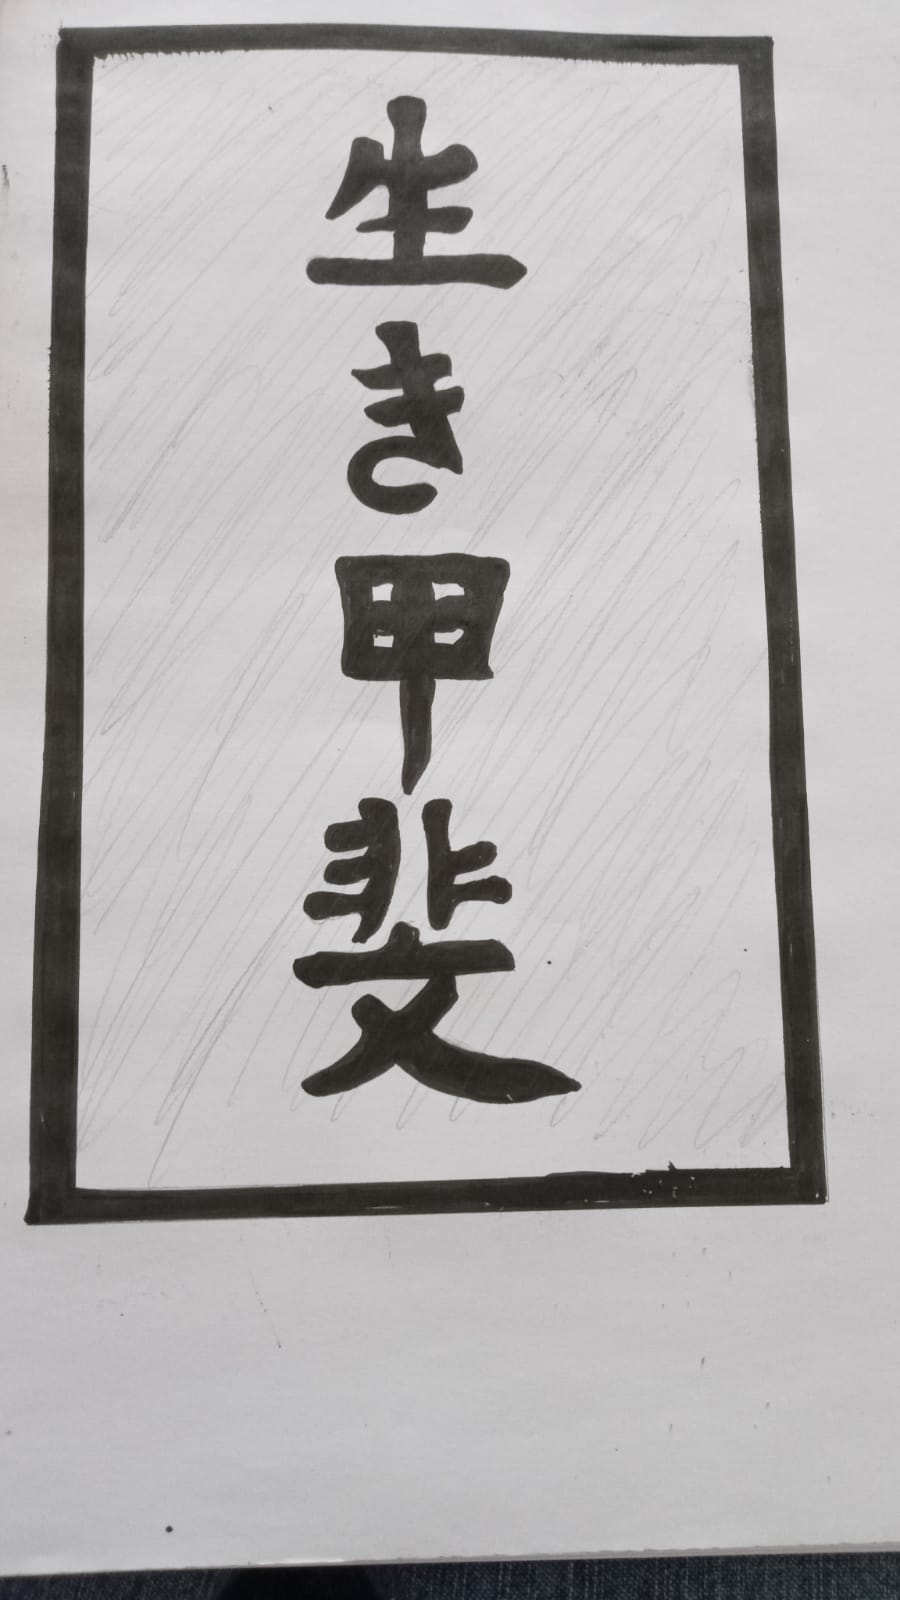 生き甲斐